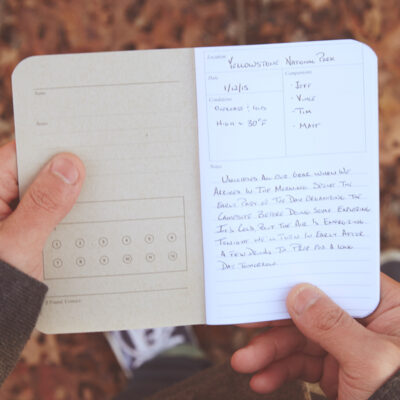 Name
Notes
1 2 3 4 5 6
7 8 9 10 11 12
Location
Yellowstone National Park
Date
1/12/15
Companions
- Jeff
- Vince
- Tim
- Matt
Conditions
Overcast
High = 30°F
Notes
Unloaded All Our Gear When We
Arrived In The Morning. Spent The
Early Part Of The Day Organizing The
Campsite Before Doing Some Exploring
It's Cold, But The Air Is Energizing.
Tonight We'll Turn In Early After
A Few Drinks To Prep For A Long
Day Tomorrow.